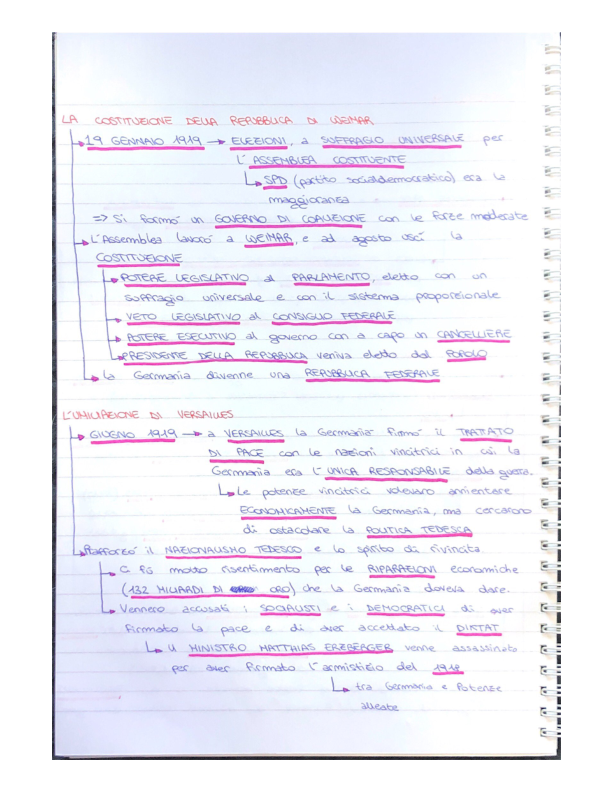 LA COSTITUZIONE DELLA REPUBBLICA DI WEIMAR
19 GENNAIO 1919 → ELEZIONI, a SUFFRAGIO UNIVERSALE per
L'ASSEMBLEA COSTITUENTE
SPD (partito socialdemocratico) era la
maggioranza
=> Si formò un GOVERNO DI COALIZIONE con le forze moderate
L'Assemblea lavorò a WEIMAR, e ad agosto uscì la
COSTITUZIONE
POTERE LEGISLATIVO al PARLAMENTO, eletto con un
suffragio universale e con il sistema proporzionale
VETO LEGISLATIVO al CONSIGLIO FEDERALE
POTERE ESECUTIVO al governo con a capo un CANCELLIERE
PRESIDENTE DELLA REPUBBLICA veniva eletto dal POPOLO
la Germania divenne una REPUBBLICA FEDERALE
L'UMILIAZIONE DI VERSAILLES
GIUGNO 1919 → a VERSAILLES la Germania firmò il TRATTATO
DI PACE con le nazioni vincitrici in cui la
Germania era L'UNICA RESPONSABILE della guerra.
Le potenze vincitrici volevano annientare
ECONOMICAMENTE la Germania, ma cercarono
di ostacolare la POLITICA TEDESCA
Rafforzò il NAZIONALISMO TEDESCO e lo spirito di rivincita
Ci fu molto risentimento per le RIPARAZIONI economiche
(132 MILIARDI DI ORO) che la Germania doveva dare.
Vennero accusati i SOCIALISTI e i DEMOCRATICI di aver
firmato la pace e di aver accettato il DIKTAT
IL MINISTRO MATTHIAS ERZBERGER venne assassinato
per aver firmato l'armistizio del 1918
tra Germania e Potenze
alleate